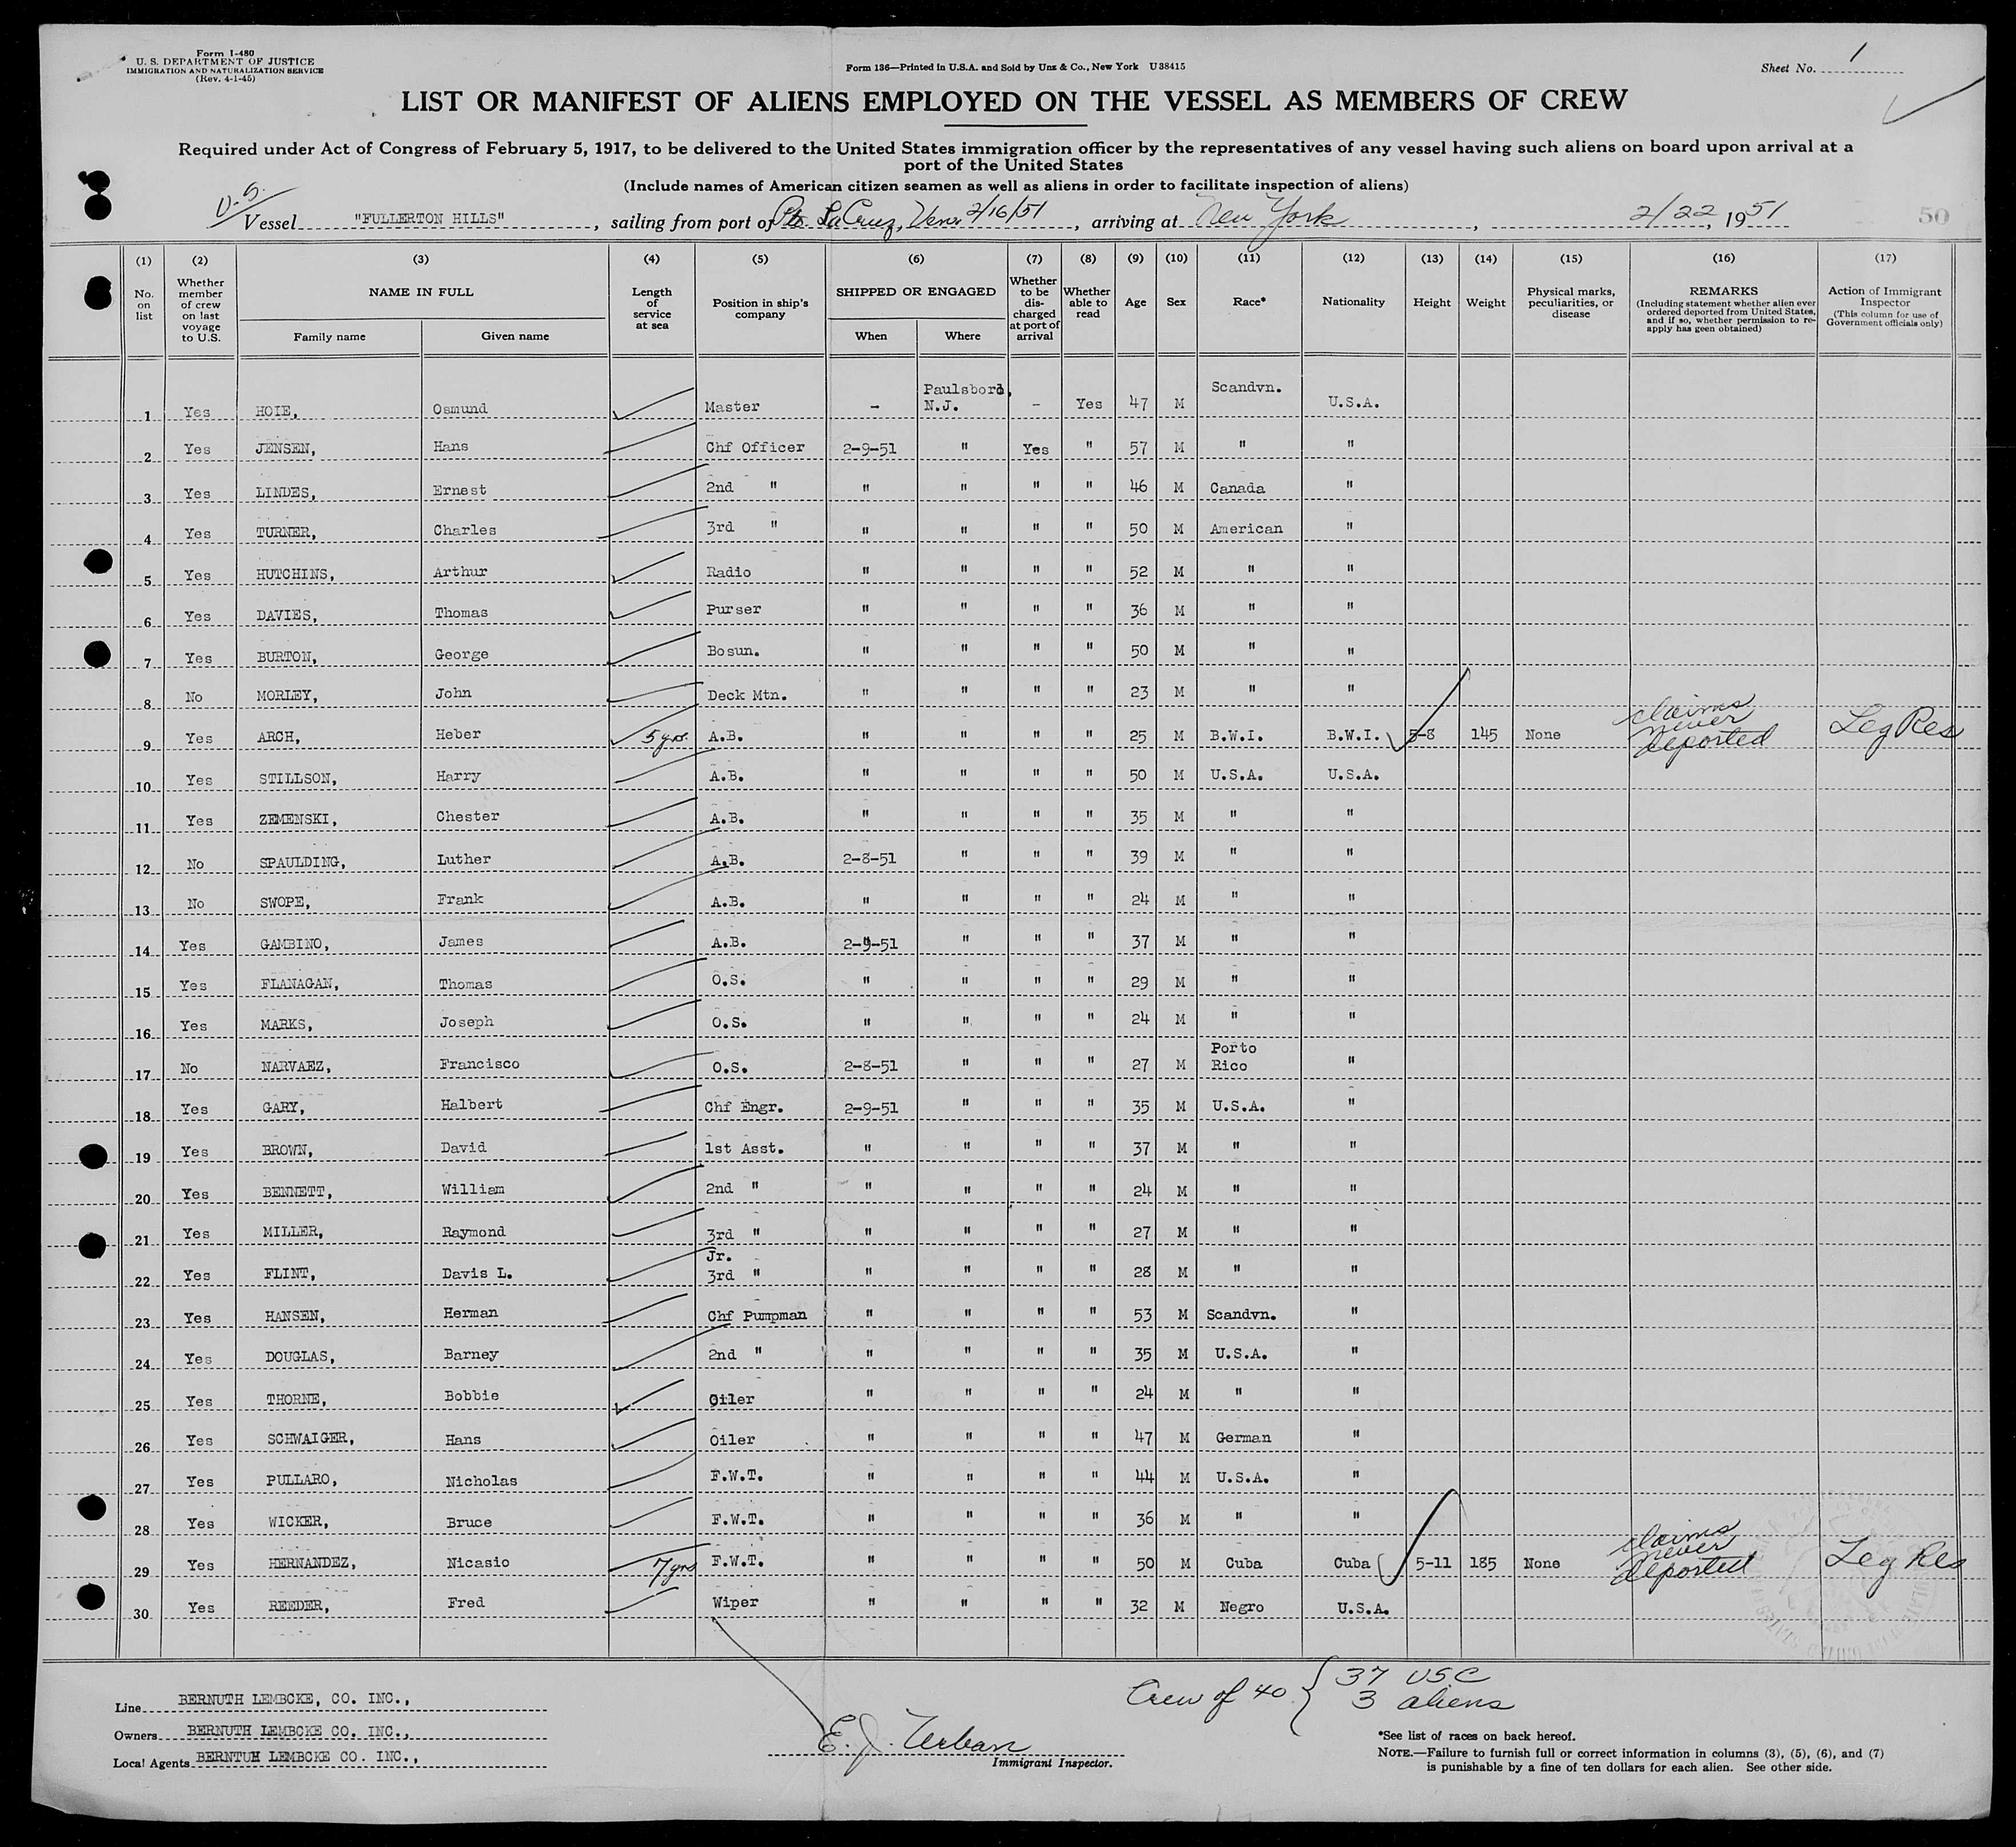 Form I-480
U. S. DEPARTMENT OF JUSTICE
IMMIGRATION AND NATURALIZATION SERVICE
(Rev. 4-1-45)
Form 136—Printed in U.S.A. and Sold by Unz & Co., New York U38415
Sheet No. 1
LIST OR MANIFEST OF ALIENS EMPLOYED ON THE VESSEL AS MEMBERS OF CREW
Required under Act of Congress of February 5, 1917, to be delivered to the United States immigration officer by the representatives of any vessel having such aliens on board upon arrival at a
port of the United States
(Include names of American citizen seamen as well as aliens in order to facilitate inspection of aliens)
U.S.
Vessel "FULLERTON HILLS", sailing from port of Pto. LaCruz, Venz 2/16/51, arriving at New York, 2/22, 1951
50
(1) (2) (3) (4) (5) (6) (7) (8) (9) (10) (11) (12) (13) (14) (15) (16) (17)
No. on list
Whether member of crew on last voyage to U.S.
NAME IN FULL
Family name Given name
Length of service at sea
Position in ship's company
SHIPPED OR ENGAGED
When Where
Whether to be discharged at port of arrival
Whether able to read
Age
Sex
Race*
Nationality
Height
Weight
Physical marks, peculiarities, or disease
REMARKS
(Including statement whether alien ever ordered deported from United States, and if so, whether permission to re-apply has geen obtained)
Action of Immigrant Inspector
(This column for use of Government officials only)
1 Yes HOIE, Osmund Master - Paulsboro, N.J. - Yes 47 M Scandvn. U.S.A.
2 Yes JENSEN, Hans Chf Officer 2-9-51 " Yes " 57 M " "
3 Yes LINDES, Ernest 2nd " " " " " 46 M Canada "
4 Yes TURNER, Charles 3rd " " " " " 50 M American "
5 Yes HUTCHINS, Arthur Radio " " " " 52 M " "
6 Yes DAVIES, Thomas Purser " " " " 36 M " "
7 Yes BURTON, George Bosun. " " " " 50 M " "
8 No MORLEY, John Deck Mtn. " " " " 23 M " "
9 Yes ARCH, Heber 5 yrs. A.B. " " " " 25 M B.W.I. B.W.I. 5-8 145 None claims never deported Leg Res
10 Yes STILLSON, Harry A.B. " " " " 50 M U.S.A. U.S.A.
11 Yes ZEMENSKI, Chester A.B. " " " " 35 M " "
12 No SPAULDING, Luther A.B. 2-8-51 " " " 39 M " "
13 No SWOPE, Frank A.B. " " " " 24 M " "
14 Yes GAMBINO, James A.B. 2-9-51 " " " 37 M " "
15 Yes FLANAGAN, Thomas O.S. " " " " 29 M " "
16 Yes MARKS, Joseph O.S. " " " " 24 M " "
17 No NARVAEZ, Francisco O.S. 2-8-51 " " " 27 M Porto Rico "
18 Yes GARY, Halbert Chf Engr. 2-9-51 " " " 35 M U.S.A. "
19 Yes BROWN, David 1st Asst. " " " " 37 M " "
20 Yes BENNETT, William 2nd " " " " " 24 M " "
21 Yes MILLER, Raymond 3rd " " " " " 27 M " "
22 Yes FLINT, Davis L. Jr. 3rd " " " " " 28 M " "
23 Yes HANSEN, Herman Chf Pumpman " " " " 53 M Scandvn. "
24 Yes DOUGLAS, Barney 2nd " " " " " 35 M U.S.A. "
25 Yes THORNE, Bobbie Oiler " " " " 24 M " "
26 Yes SCHWAIGER, Hans Oiler " " " " 47 M German "
27 Yes PULLARO, Nicholas F.W.T. " " " " 44 M U.S.A. "
28 Yes WICKER, Bruce F.W.T. " " " " 36 M " "
29 Yes HERNANDEZ, Nicasio 7 yrs F.W.T. " " " " 50 M Cuba Cuba 5-11 185 None claims never deported Leg Res
30 Yes REEDER, Fred Wiper " " " " 32 M Negro U.S.A.
Line BERNUTH LEMBCKE, CO. INC.,
Owners BERNUTH LEMBCKE CO. INC.,
Local Agents BERNTUH LEMBCKE CO. INC.,
E. J. Urban
Immigrant Inspector.
Crew of 40 { 37 USC
3 aliens
*See list of races on back hereof.
NOTE.—Failure to furnish full or correct information in columns (3), (5), (6), and (7)
is punishable by a fine of ten dollars for each alien. See other side.